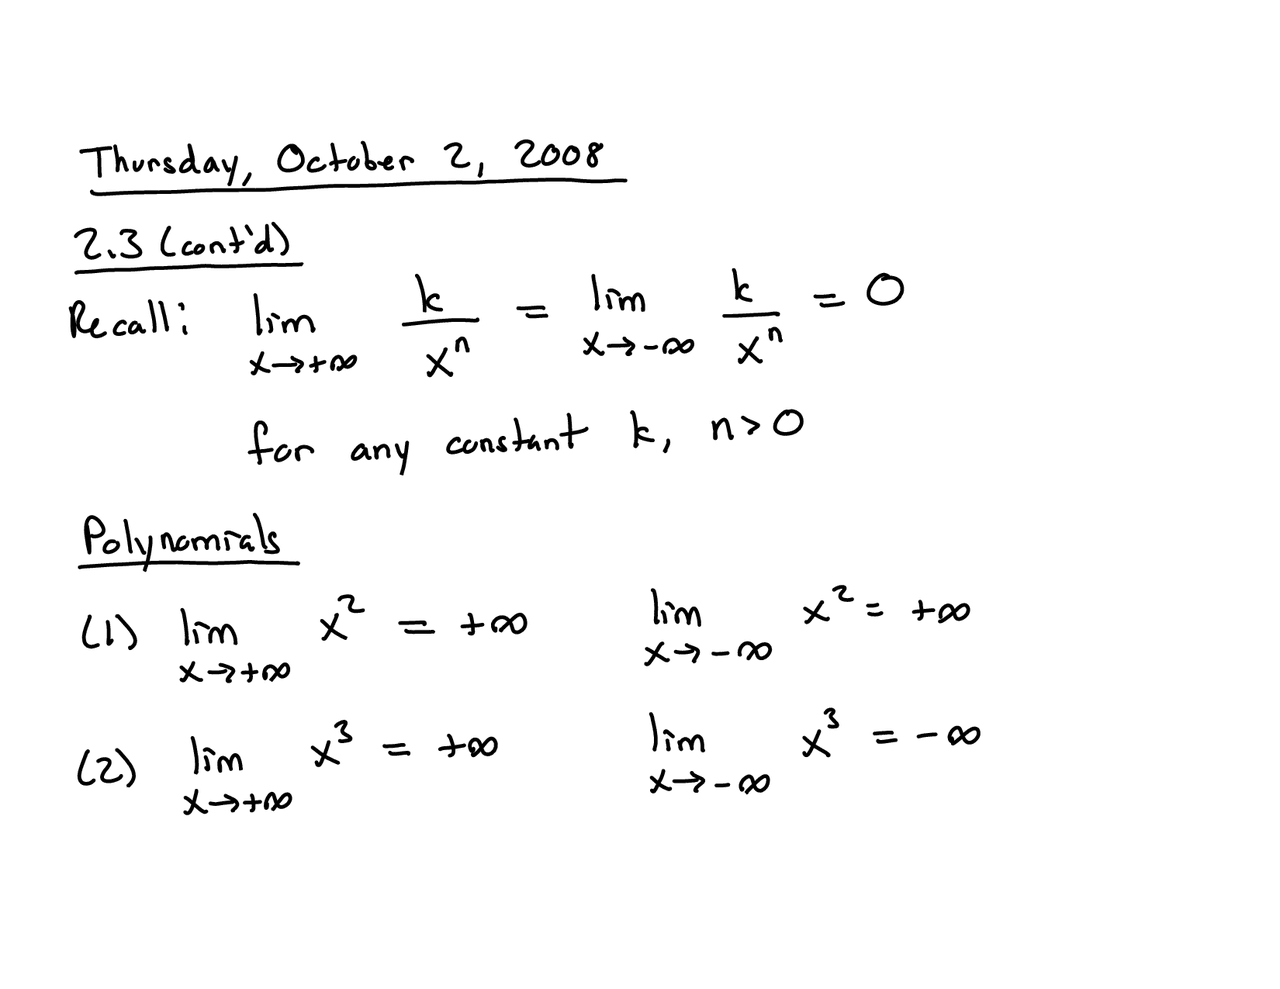 Thursday, October 2, 2008
2.3 (cont'd)
Recall: lim x→+∞ k/xⁿ = lim x→-∞ k/xⁿ = 0
for any constant k, n>0
Polynomials
(1) lim x→+∞ x² = +∞ lim x→-∞ x² = +∞
(2) lim x→+∞ x³ = +∞ lim x→-∞ x³ = -∞